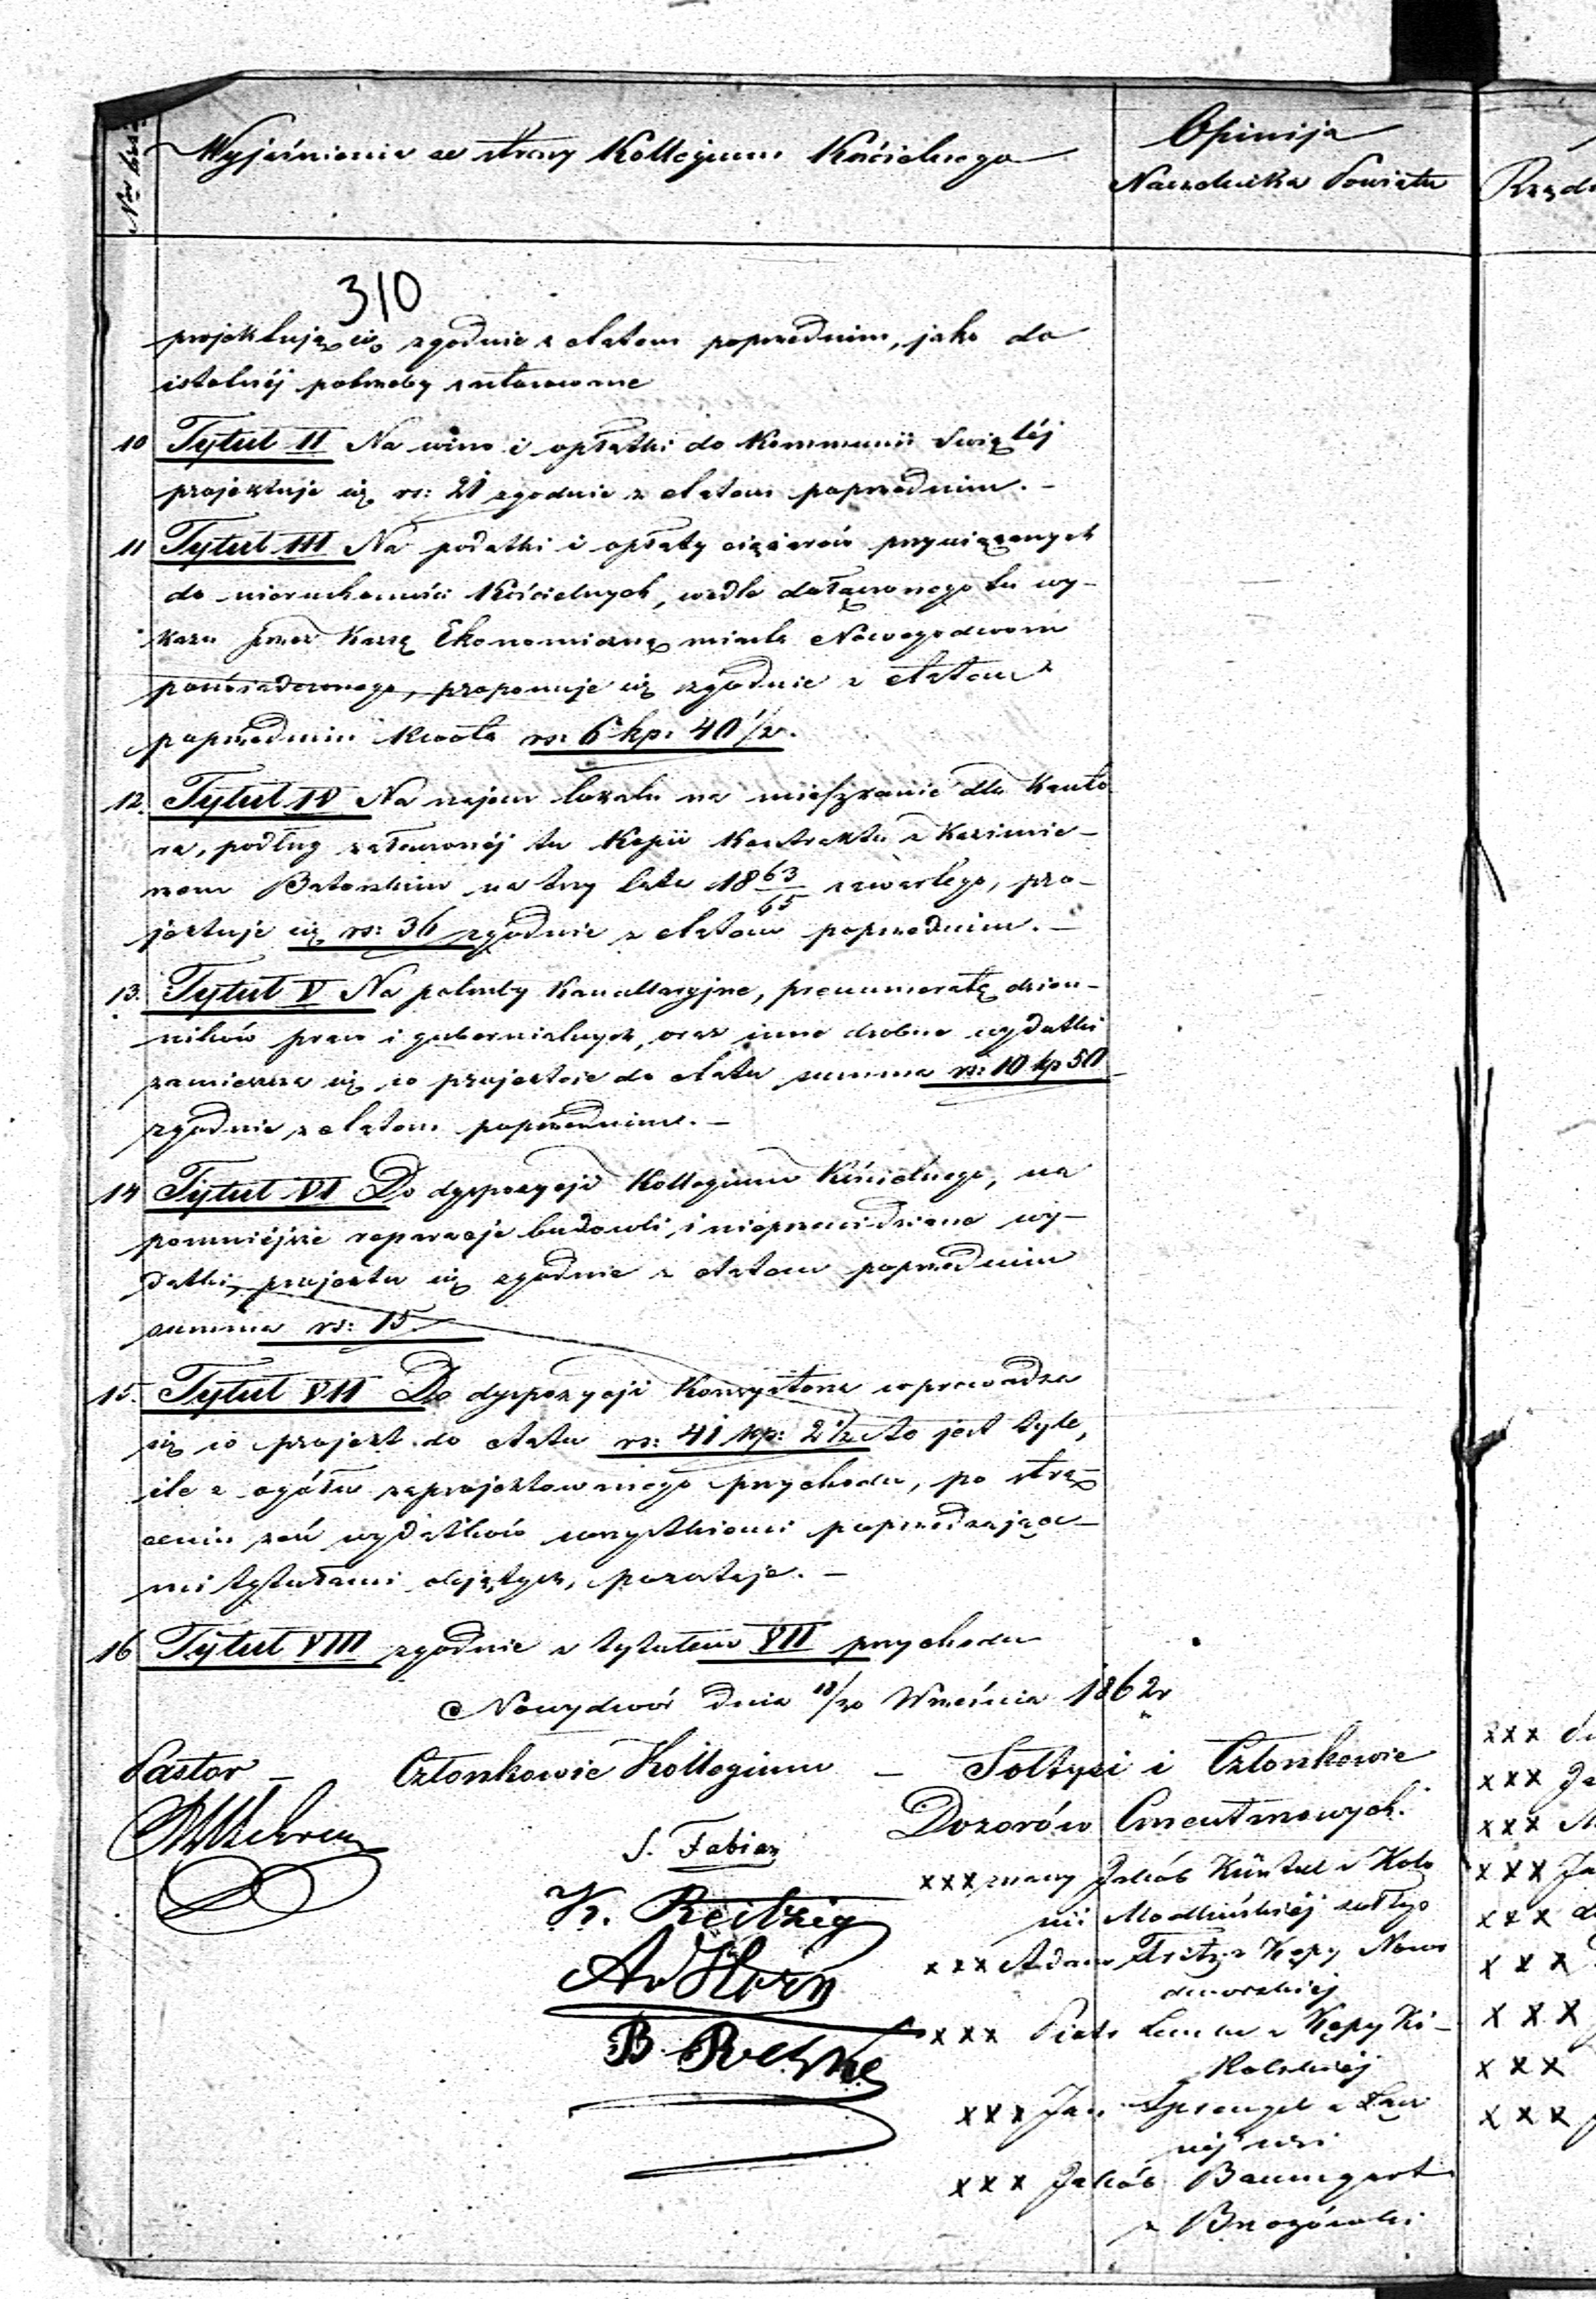 Nr bież.
Wyjaśnienie ze strony Kollegium Kościelnego
Opinija
Naczelnika Powiatu
310
projektują się zgodnie z etatem poprzednim, jako do
istotnéj potrzeby zastosowane
10 Tytuł II Na wino i opłatki do Kommunii Swiętéj
projektuje się rs: 21 zgodnie z etatem poprzednim. –
11 Tytuł III Na podatki i opłaty ciężarów przywiązanych
do nieruchomości Kościelnych, wedle dołączonego tu wy-
kazu przez Kassę Ekonomiczną miasta Nowegodworu
poświadczonego, proponuje się zgodnie z etatem
poprzednim kwota rs: 6 kp: 40 1/2.
12. Tytuł IV Na najem lokalu na mieszkanie dla Kanto
ra, podług załączonéj tu Kopii Kontraktu z Kazimie-
rzem na trzy lata 18 63/65 zawartego, pro-
jektuje się rs: 36 zgodnie z etatem poprzednim. –
13. Tytuł V Na potrzeby Kancellaryjne, prenumeratę dzien-
ników praw i gubernialnych, oraz inne drobne wydatki
zamieszcza się w projekcie do etatu summa rs: 10 kp 50
zgodnie z etatem poprzednim. –
14 Tytuł VI Do dyspozycji Kollegium Kościelnego, na
pomniejsze reparacje budowli, i nieprzewidziane wy-
datki, projektu się zgodnie z etatem poprzednim
summa rs: 15
15. Tytuł VII Do dyspozycji Konsystorza wprowadza
się w projekt do etatu rs: 41 kp: 2 1/2 to jest tyle,
ile z ogółu zaprojektowanego przychodu, po strą-
ceniu zeń wydatków wszystkiemi poprzedzające-
mi tytułami objętych, pozostaje. –
16 Tytuł VIII zgodnie z tytułem VII przychodu
Nowydwór dnia 18/30 Września 1862 r
Pastor – Członkowie Kollegium – Sołtysi i Członkowie
Dozorów Cmentarnowych.
S. Fabian
K. Reitzig
A Horn
B
xxx znaky Jakób Küntzel z Kolo
nii Modlińskiéj sołtys
xxx Adam Fritz z Kępy Nowo
dworskiéj
xxx Piotr z Kępy Ki-
kolskiéj
xxx Jan Sprengel z Łąs
néj wsi
xxx Jakób Baumgart
z Brozówki
xxx
xxx Ja
xxx
xxx Ja
xxx
xxx
xxx
xxx
xxx